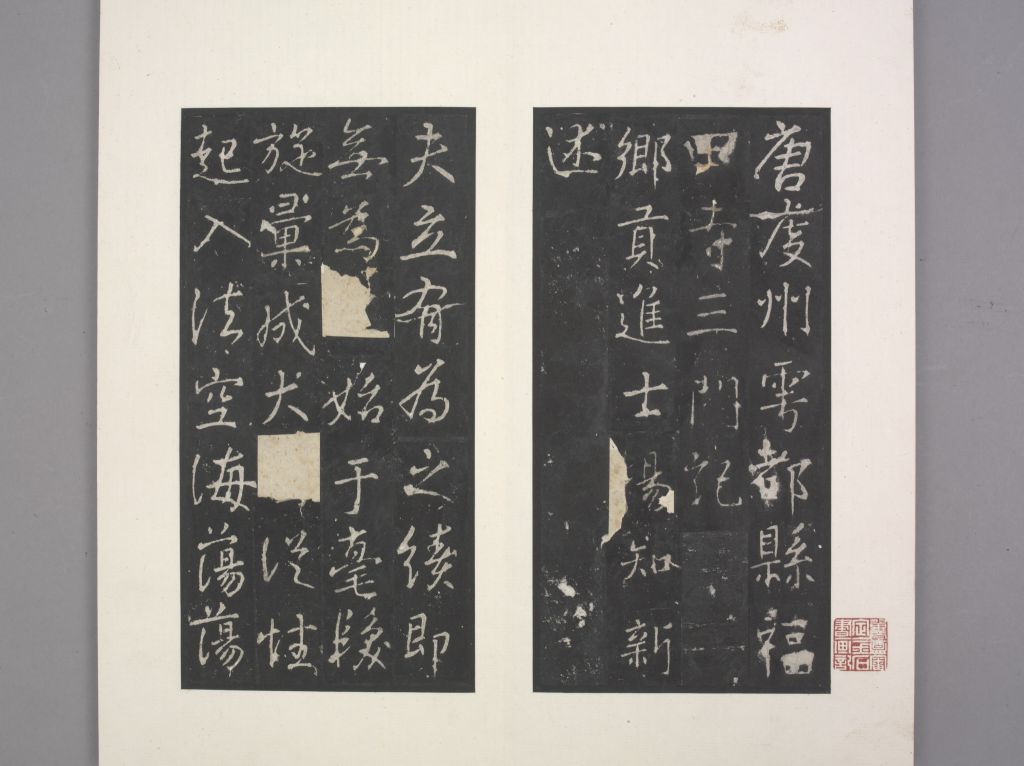 唐虔州雩都縣福
田寺三門記
鄉貢進士楊知新
述
夫立有為之績即
無為始于毫髮
旋彙成犬從性
起入法空海蕩蕩